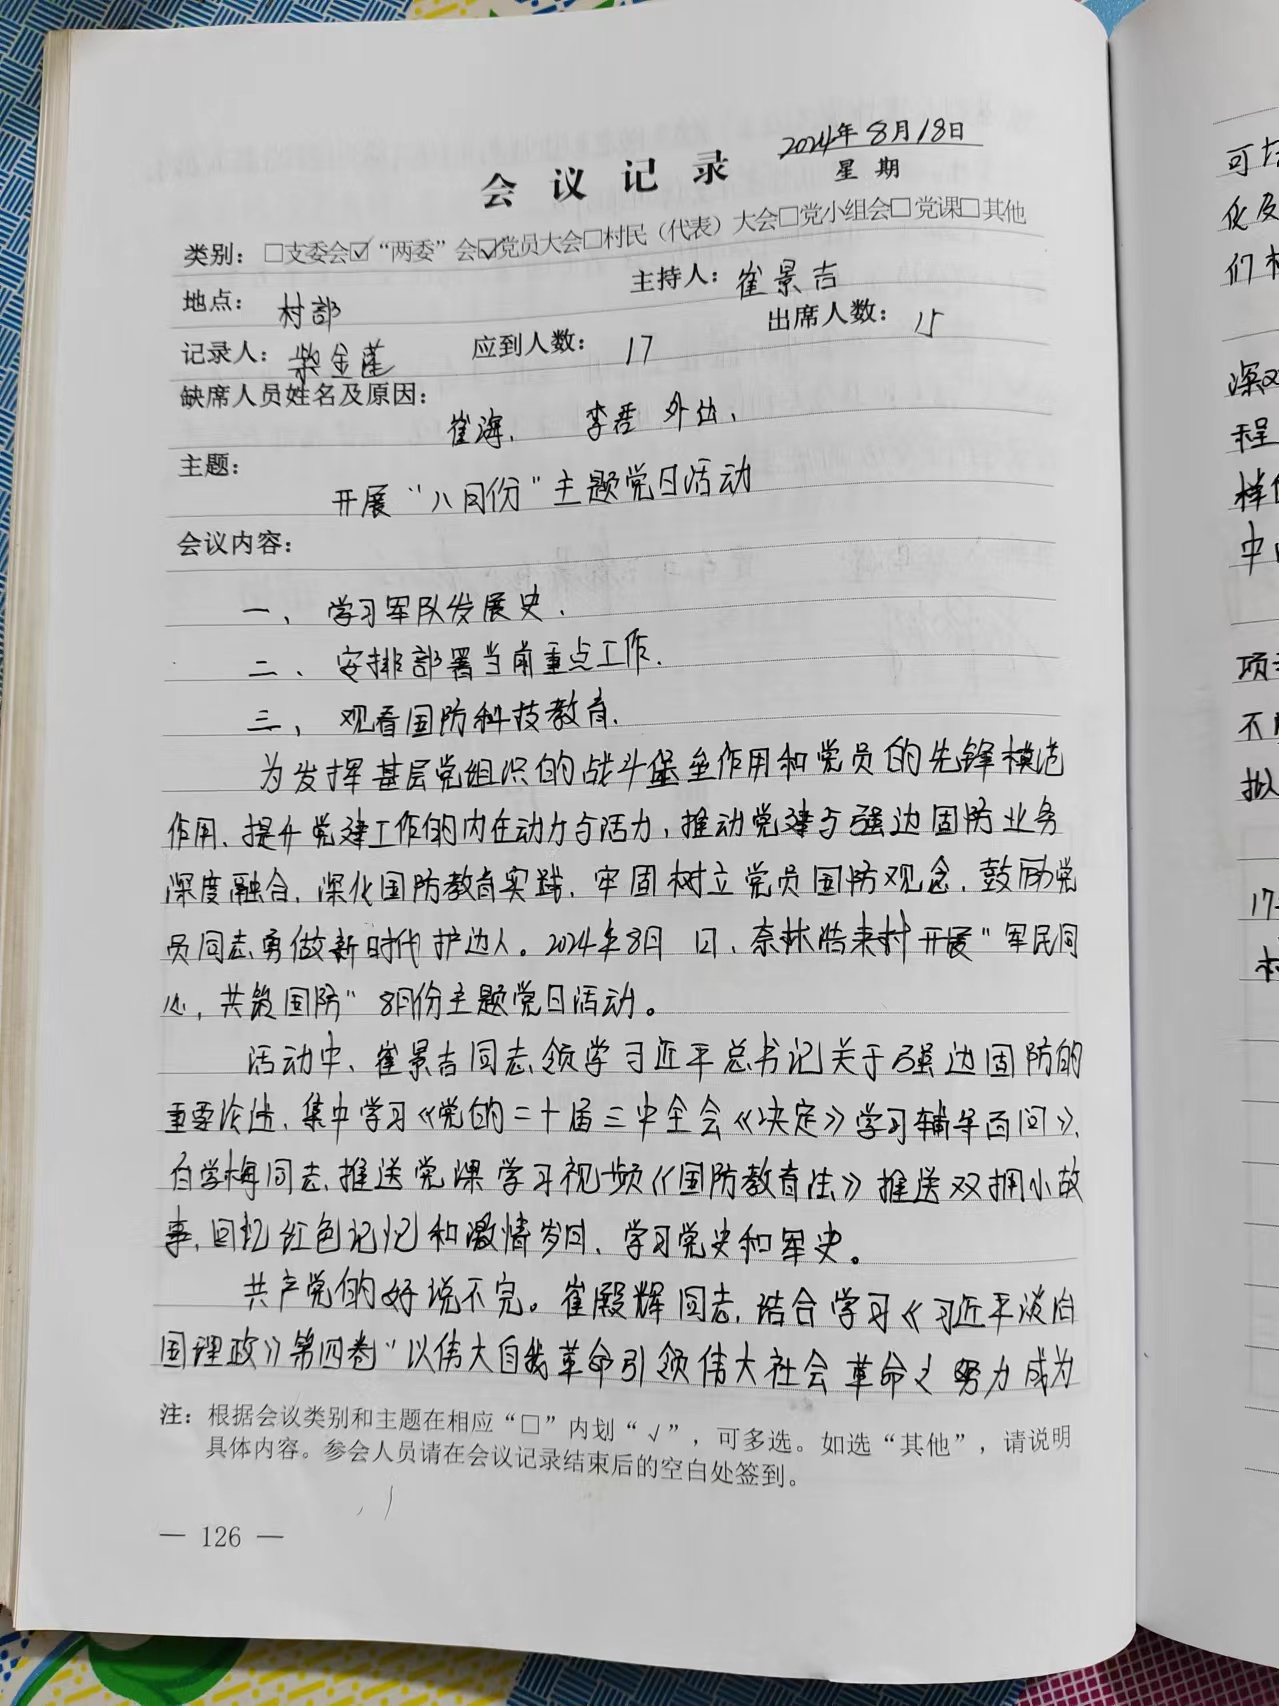 2024年8月18日
会议记录
星期
类别：□支委会☑“两委”会☑党员大会□村民（代表）大会□党小组会□党课□其他
地点：村部 主持人：崔景吉
记录人：柴金莲 应到人数：17 出席人数：15
缺席人员姓名及原因：
崔海、李 外出、
主题：
开展“八月份”主题党日活动
会议内容：
一、学习军队发展史.
二、安排部署当前重点工作.
三、观看国防科技教育.
为发挥基层党组织的战斗堡垒作用和党员的先锋模范
作用、提升党建工作的内在动力与活力，推动党建与强边固防业务
深度融合，深化国防教育实践、牢固树立党员国防观念，鼓励党
员同志勇做新时代护边人。2024年8月 日、奈林皓来村开展“军民同
心，共筑国防”8月份主题党日活动。
活动中、崔景吉同志领学习近平总书记关于强边固防的
重要论述、集中学习《党的二十届三中全会《决定》学习辅导百问》、
白学梅同志推送党课学习视频《国防教育法》推送双拥小故
事，回忆红色记忆和激情岁月、学习党史和军史。
共产党的好说不完。崔殿辉同志，结合学习《习近平谈治
国理政》第四卷“以伟大自我革命引领伟大社会革命” 努力成为
注：根据会议类别和主题在相应“□”内划“√”，可多选。如选“其他”，请说明
具体内容。参会人员请在会议记录结束后的空白处签到。
— 126 —
化及
们村
深双
程
样
中
项
不
拟
17
村